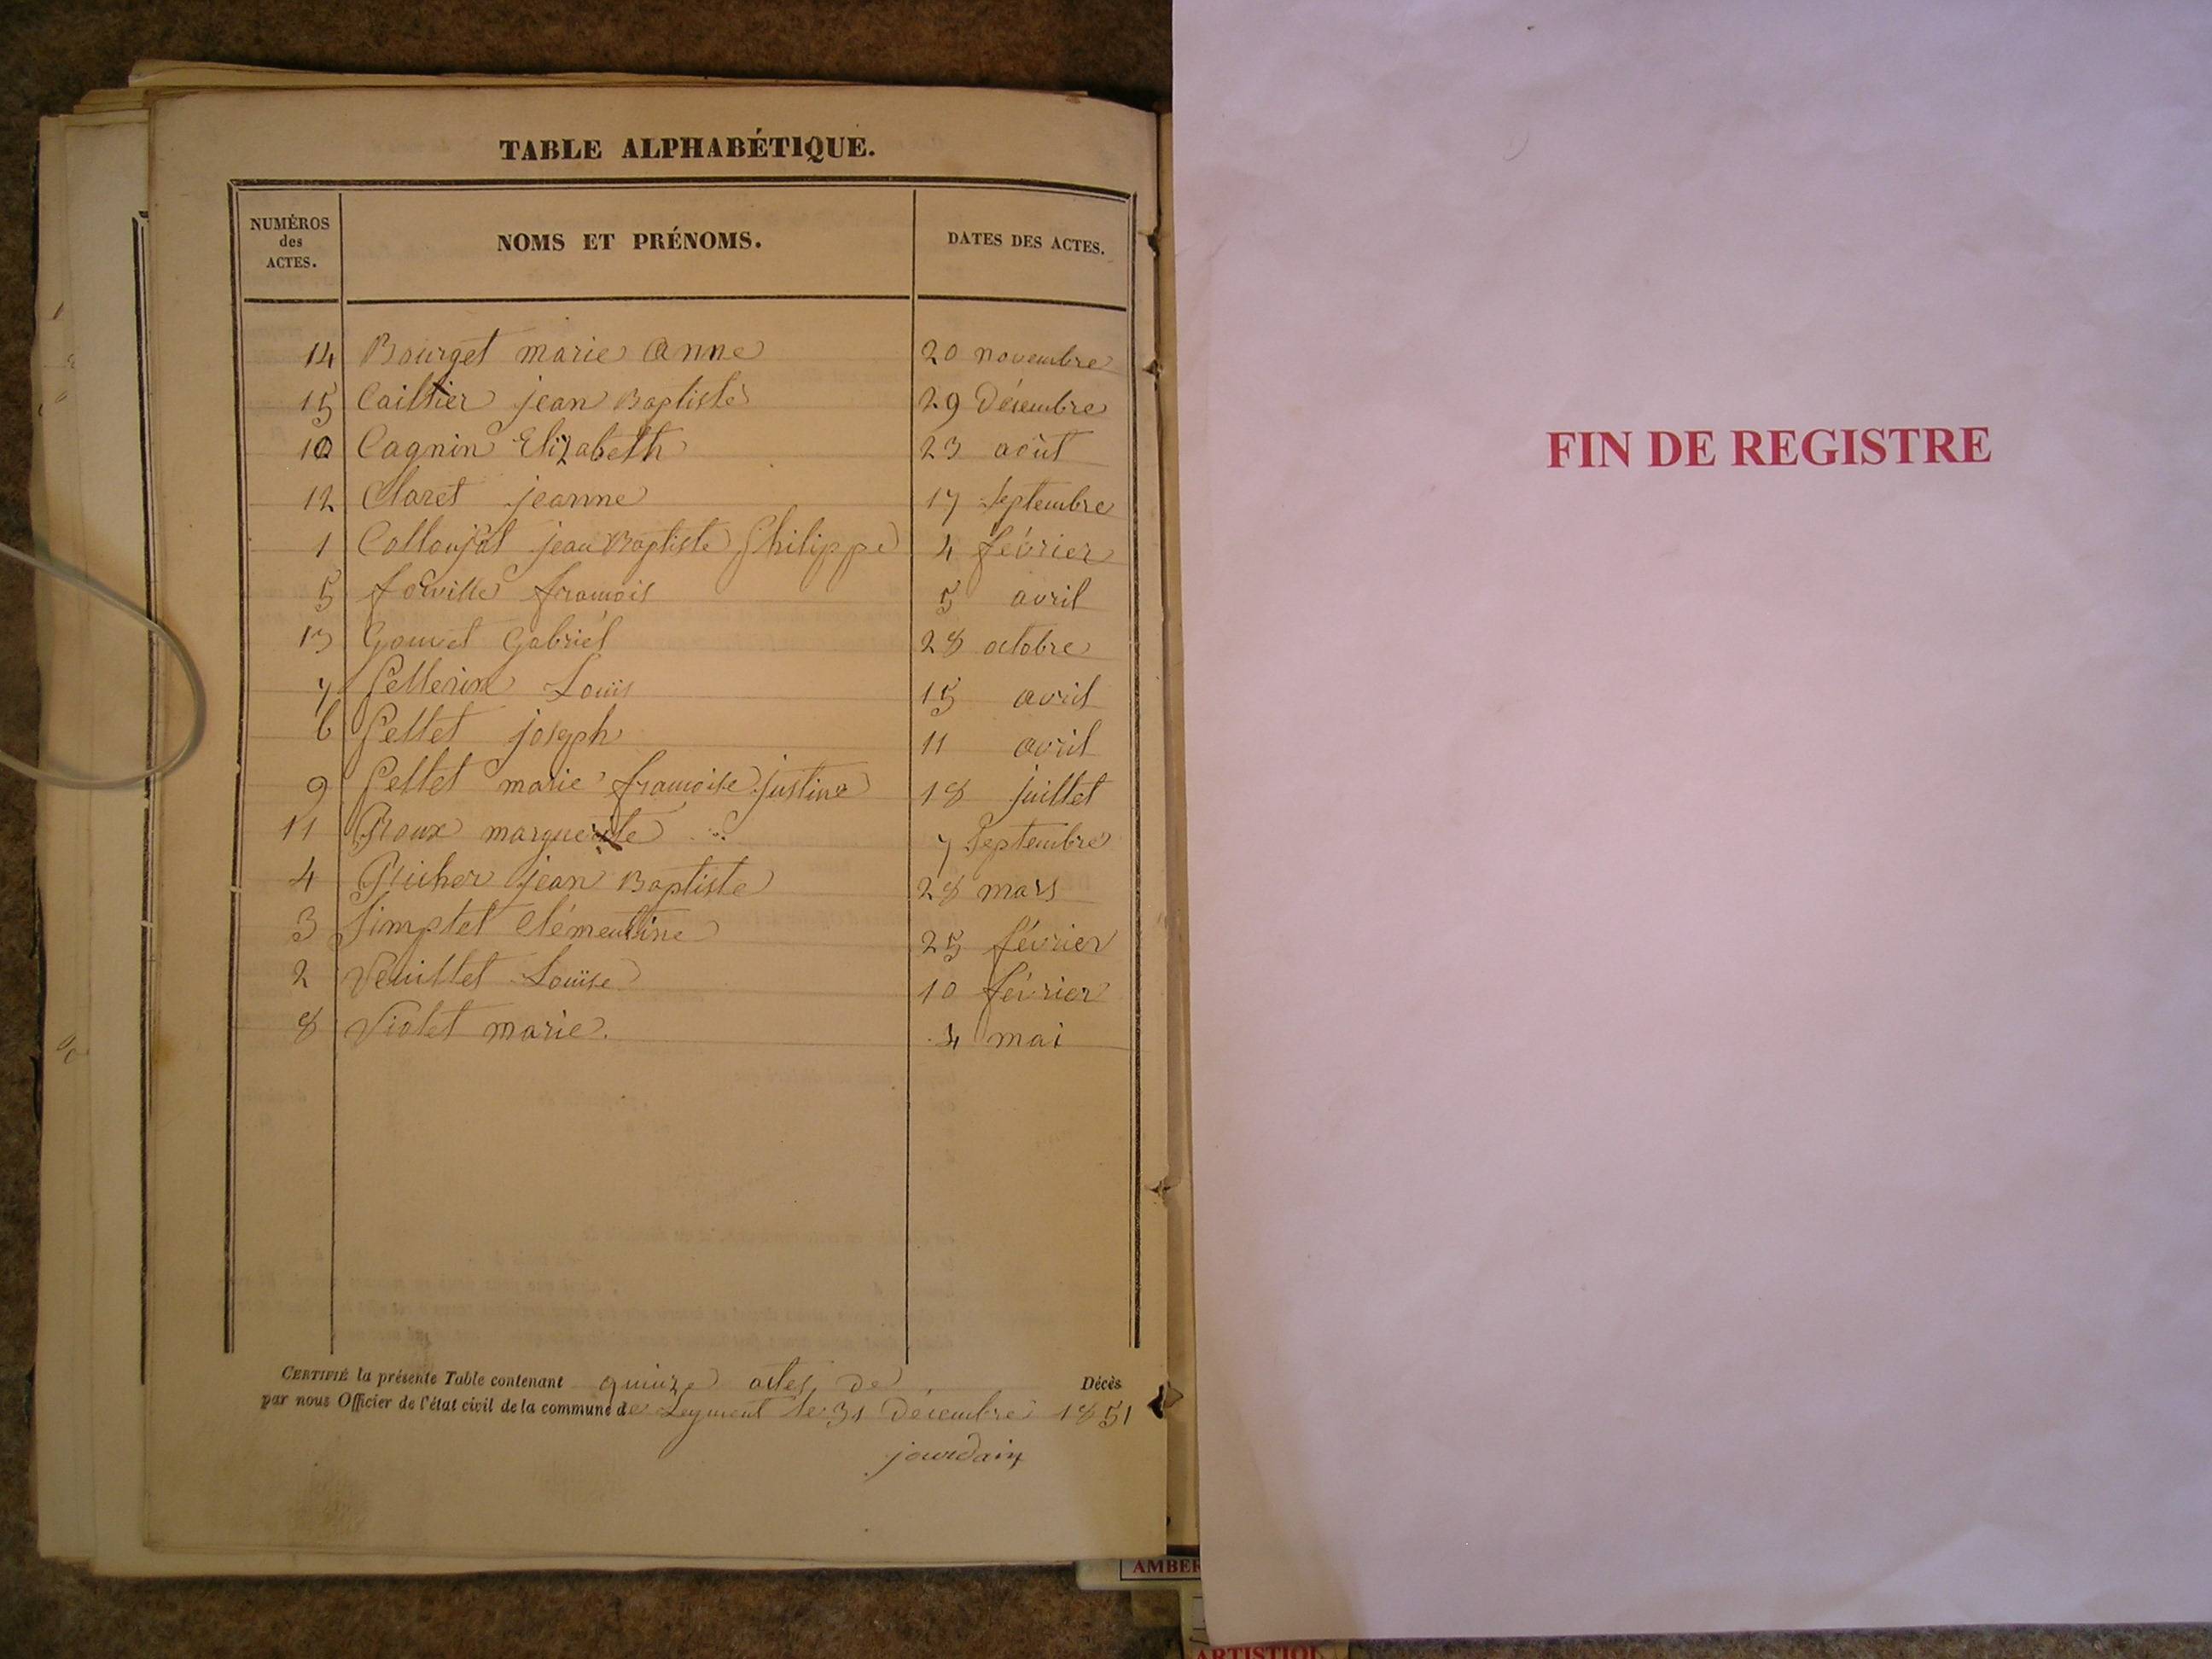 TABLE ALPHABÉTIQUE.
NUMÉROS
des
ACTES.
NOMS ET PRÉNOMS.
DATES DES ACTES.
14 Bourget marie anne 20 novembre
15 Cailtier jean Baptiste 29 Décembre
10 Cagnin Elizabeth 23 août
12 Claret jeanne 17 Septembre
1 jean Baptiste Philippe 4 février
5 forville francois 5 avril
13 Gouvet Gabriel 28 octobre
7 Pellerin Louis 15 avril
6 Pellet joseph 11 avril
9 Pellet marie francoise justine 18 juillet
11 Roux marguerite 7 Septembre
4 Richer jean Baptiste 28 mars
3 Simptet Clémentine 25 février
2 Veuillet Louise 10 février
8 Violet marie. 4 mai
CERTIFIÉ la présente Table contenant quinze actes de Décès
par nous Officier de l'état civil de la commune de Leyment le 31 Décembre 1851
jourdain
FIN DE REGISTRE
AMBER
ARTISTIQU